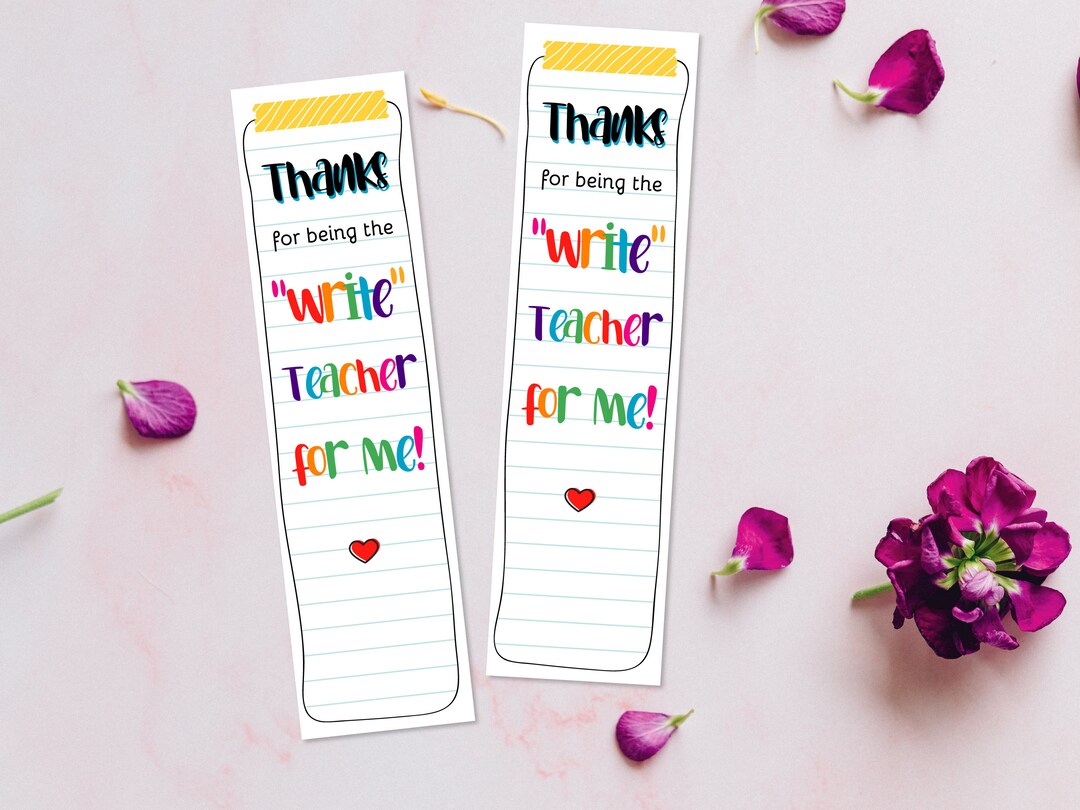 Thanks
for being the
"write"
Teacher
for me!
Thanks
for being the
"write"
Teacher
for me!